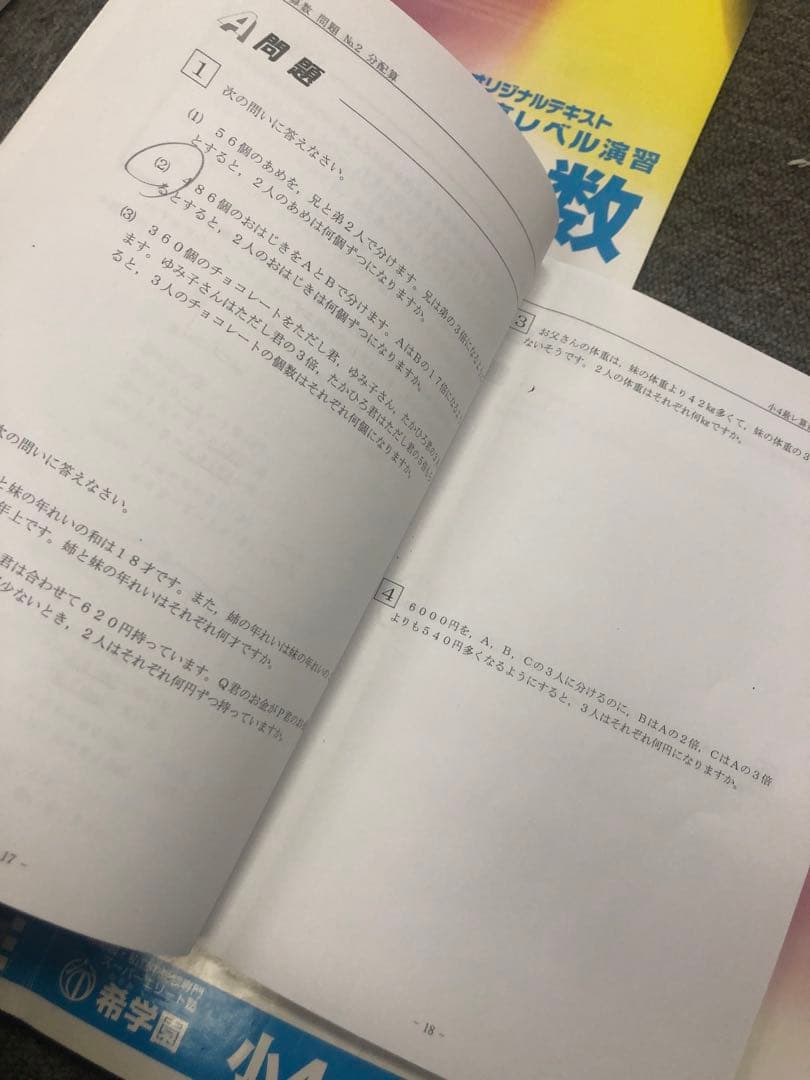 算数 問題 №2 分配算
A問題
1 次の問いに答えなさい。
(1) 56個のあめを，兄と弟2人で分けます。兄は弟の3倍になるよ
とすると，2人のあめは何個ずつになりますか。
(2) 486個のおはじきをAとBで分けます。AはBの17倍になる
るとすると，2人のおはじきは何個ずつになりますか。
(3) 360個のチョコレートをただし君，ゆみ子さん，たかひろ君の3
ます。ゆみ子さんはただし君の3倍，たかひろ君はただし君の5倍
ると，3人のチョコレートの個数はそれぞれ何個になりますか。
次の問いに答えなさい。
と妹の年れいの和は18才です。また，姉の年れいは妹の年れいの
年上です。姉と妹の年れいはそれぞれ何才ですか。
君は合わせて620円持っています。Q君のお金がP君のお
少ないとき，2人はそれぞれ何円ずつ持っていますか。
17 -
オリジナルテキスト
レベル演習
数
小4最レ算
3 お父さんの体重は，妹の体重より42kg多くて，妹の体重の3
ないそうです。2人の体重はそれぞれ何kgですか。
4 6000円を，A，B，Cの3人に分けるのに，BはAの2倍，CはAの3倍
よりも540円多くなるようにすると，3人はそれぞれ何円になりますか。
- 18 -
スーパーエリート塾
希学園
小4